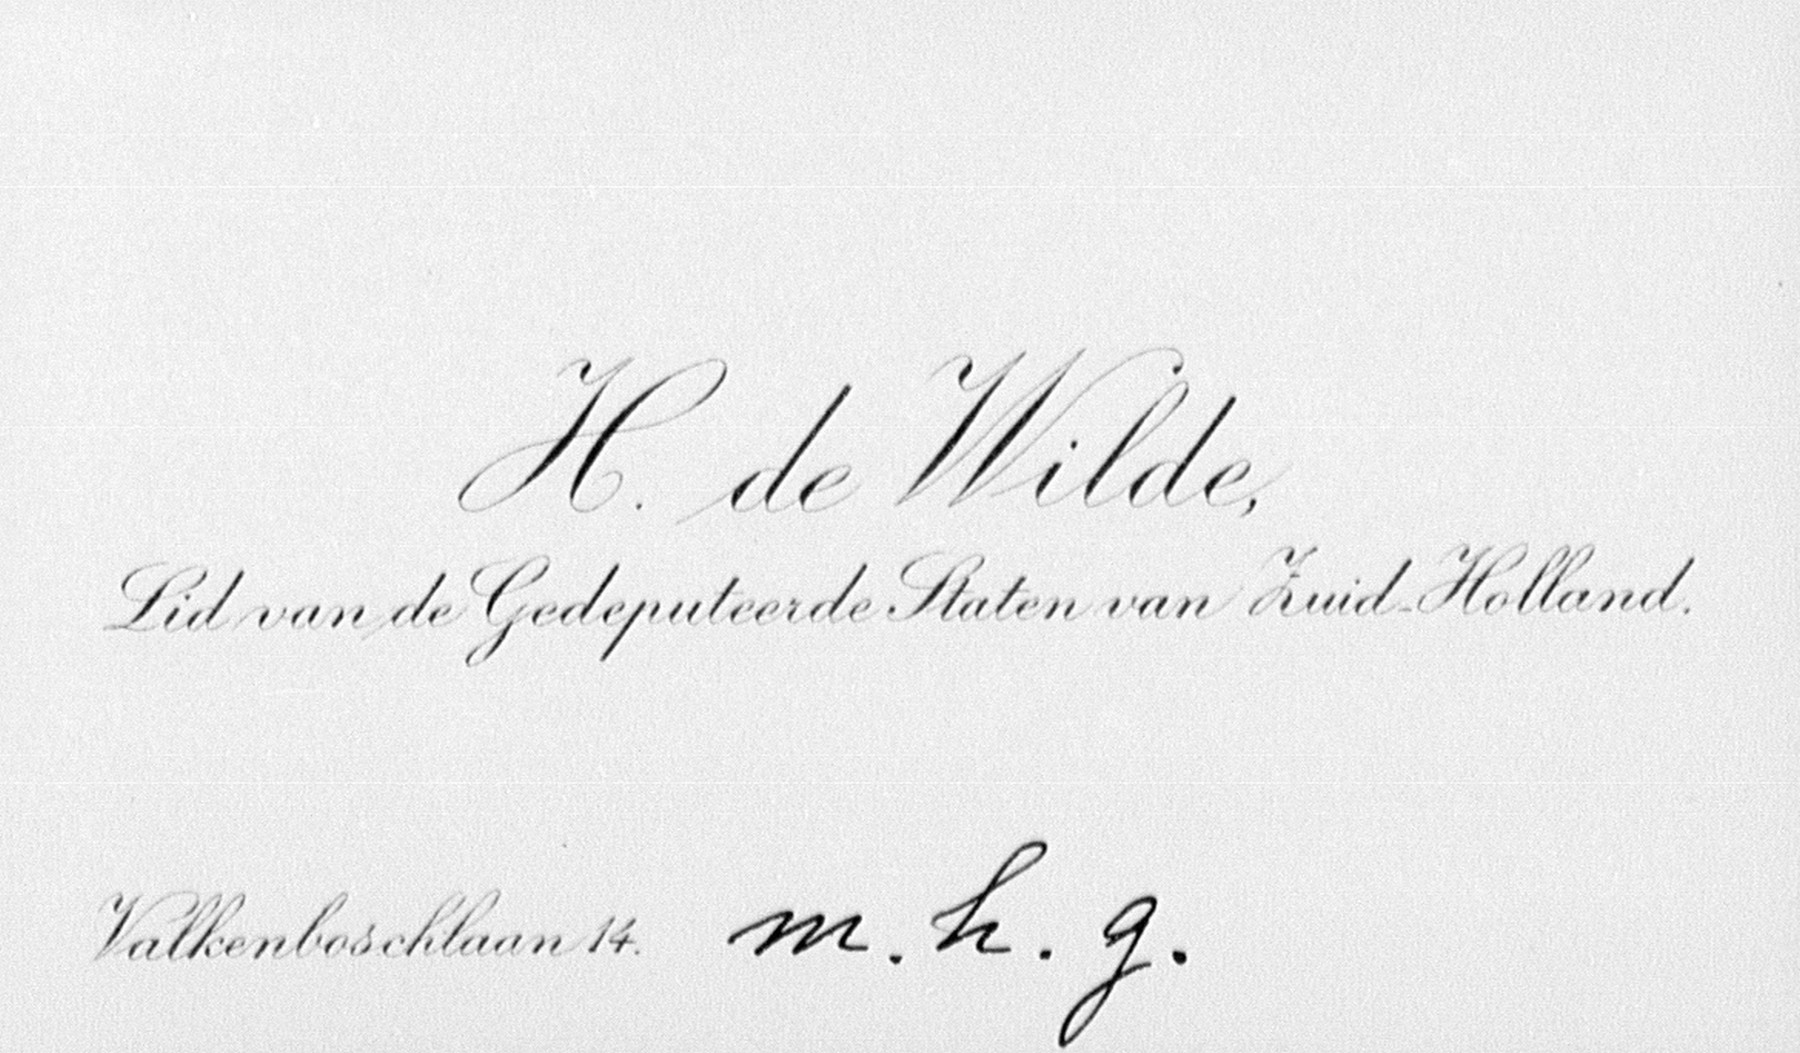 H. de Wilde,
Lid van de Gedeputeerde Staten van Zuid-Holland.
Valkenboschlaan 14. m. h. g.